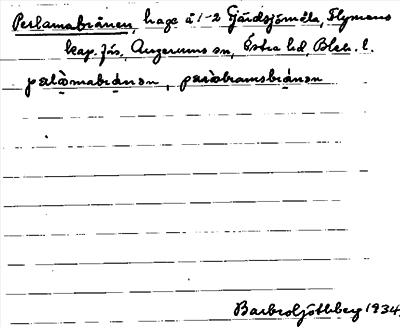 Perlamabränen, hage å 1-2 Gärdsjömåla, Flymens
kap. förs. Augerums sn, Östra hd, Blek. l.
pælamabränən, pæːabramsbränən
Barbro Ljöttberg 1934.